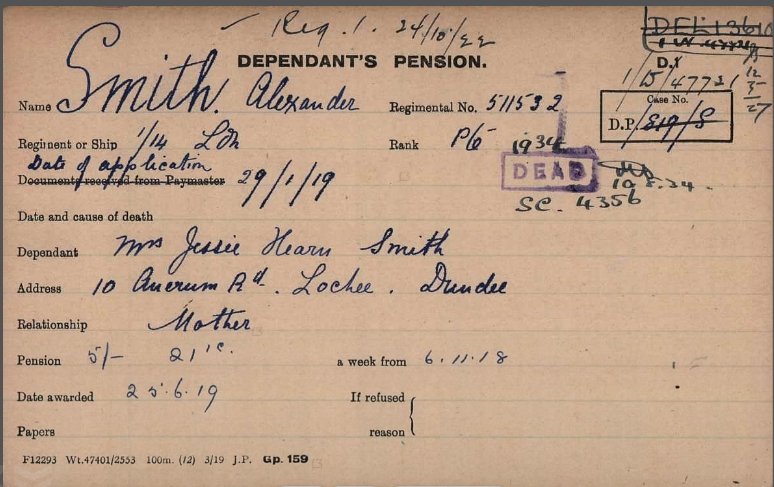 Req. 1. 24/10/22
DEPENDANT'S PENSION.
D.1
1/D/47721
12
5
27
Name Smith. Alexander Regimental No. 511532
Case No.
D.P./819/S
Regiment or Ship 1/14 Ldn Rank Pte
1934
Date of application
Documents received from Paymaster 29/1/19
DEAD
10.8.34.
SC. 4356
Date and cause of death
Dependant Mrs Jessie Hearn Smith
Address 10 Ancrum Rd. Lochee. Dundee
Relationship Mother
Pension 5/- 21 a week from 6.11.18
Date awarded 25.6.19 If refused
Papers reason
F12293 Wt.47401/2553 100m. (12) 3/19 J.P. Gp. 159